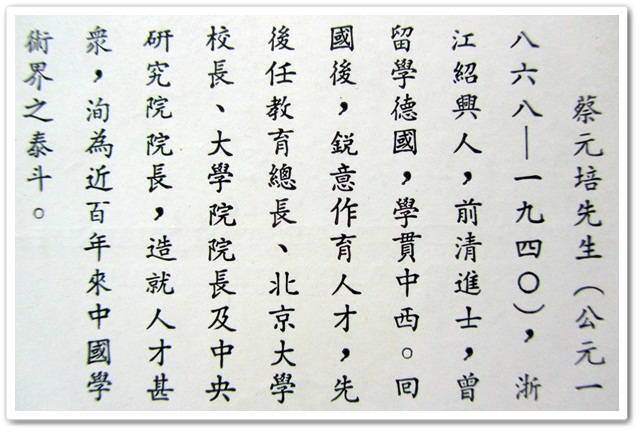 蔡元培先生（公元一
八六八—一九四〇），浙
江紹興人，前清進士，曾
留學德國，學貫中西。回
國後，銳意作育人才，先
後任教育總長、北京大學
校長、大學院院長及中央
研究院院長，造就人才甚
衆，洵為近百年來中國學
術界之泰斗。